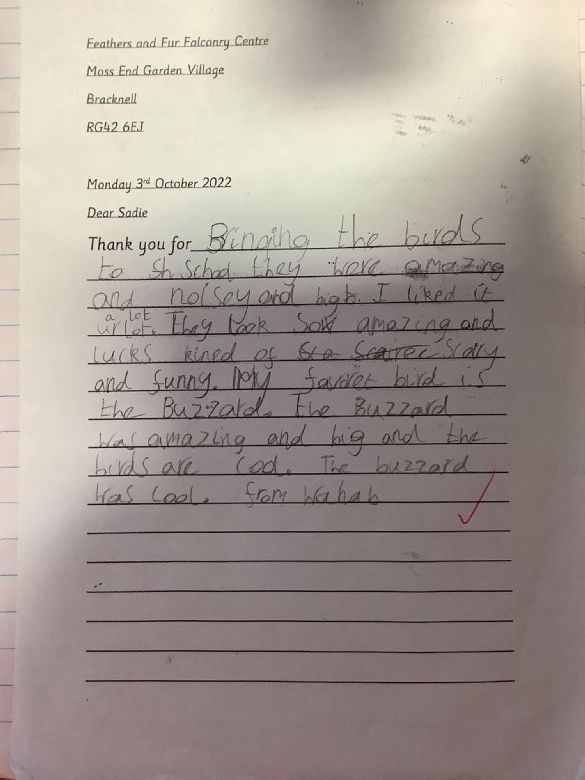 Feathers and Fur Falconry Centre
Moss End Garden Village
Bracknell
RG42 6EJ
Monday 3rd October 2022
Dear Sadie
Thank you for Binging the birds
to Sh School they were amazing
and noisey and high. I liked it
a lot
ur lot. They look Sow amazing and
lucks kined of Sca Scairee Scary
and funny. My favret bird is
the Buzzard. The Buzzard
was amazing and big and the
birds are cool. The buzzard
was cool. from Wahab